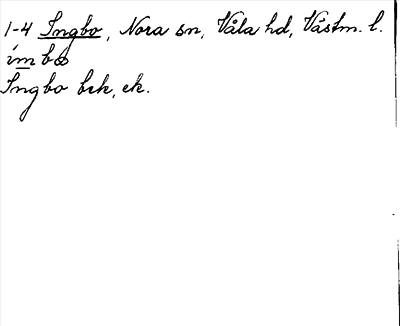 1-4 Ingbo, Nora sn, Våla hd, Västm. l.
Ingbo brk, ek.